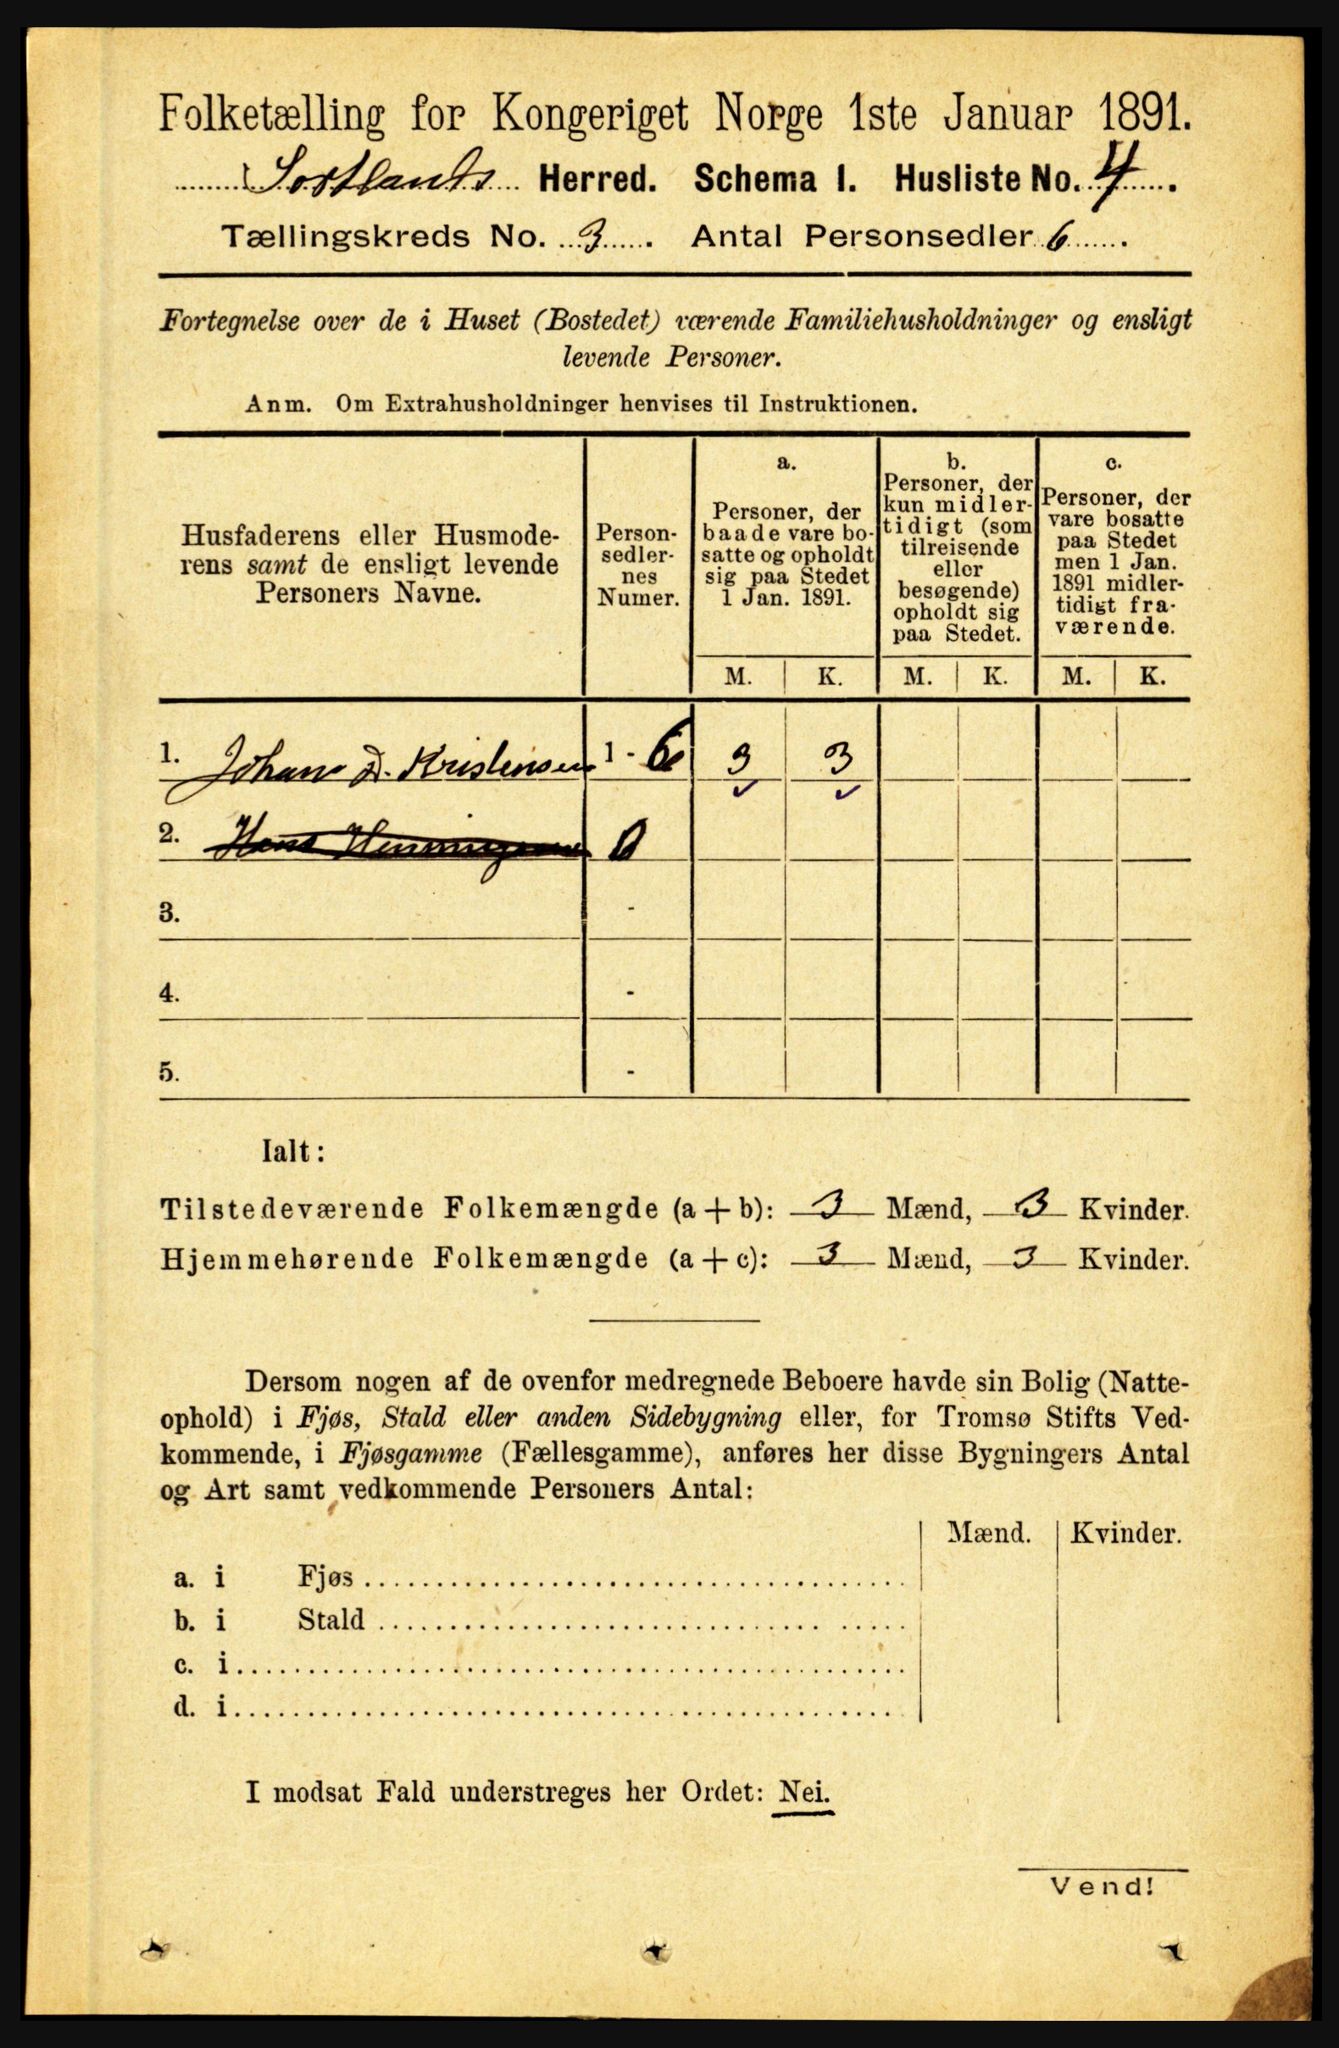 Folketælling for Kongeriget Norge 1ste Januar 1891.
Sortlands Herred. Schema I. Husliste No. 4.
Tællingskreds No. 3. Antal Personsedler 6.
Fortegnelse over de i Huset (Bostedet) værende Familiehusholdninger og ensligt
levende Personer.
Anm. Om Extrahusholdninger henvises til Instruktionen.
Husfaderens eller Husmode-
rens samt de ensligt levende
Personers Navne.
Person-
sedler-
nes
Numer.
a.
Personer, der
baade vare bo-
satte og opholdt
sig paa Stedet
1 Jan. 1891.
b.
Personer, der
kun midler-
tidigt (som
tilreisende
eller
besøgende)
opholdt sig
paa Stedet.
c.
Personer, der
vare bosatte
paa Stedet
men 1 Jan.
1891 midler-
tidigt fra-
værende.
M. K. M. K. M. K.
1. Johan D. Kristensen 1 - 6 3 3
2. Hans Henningsen 0
3. -
4. -
5. -
Ialt:
Tilstedeværende Folkemængde (a + b): 3 Mænd, 3 Kvinder.
Hjemmehørende Folkemængde (a + c): 3 Mænd, 3 Kvinder.
Dersom nogen af de ovenfor medregnede Beboere havde sin Bolig (Natte-
ophold) i Fjøs, Stald eller anden Sidebygning eller, for Tromsø Stifts Ved-
kommende, i Fjøsgamme (Fællesgamme), anføres her disse Bygningers Antal
og Art samt vedkommende Personers Antal:
Mænd. Kvinder.
a. i Fjøs
b. i Stald
c. i
d. i
I modsat Fald understreges her Ordet: Nei.
Vend!